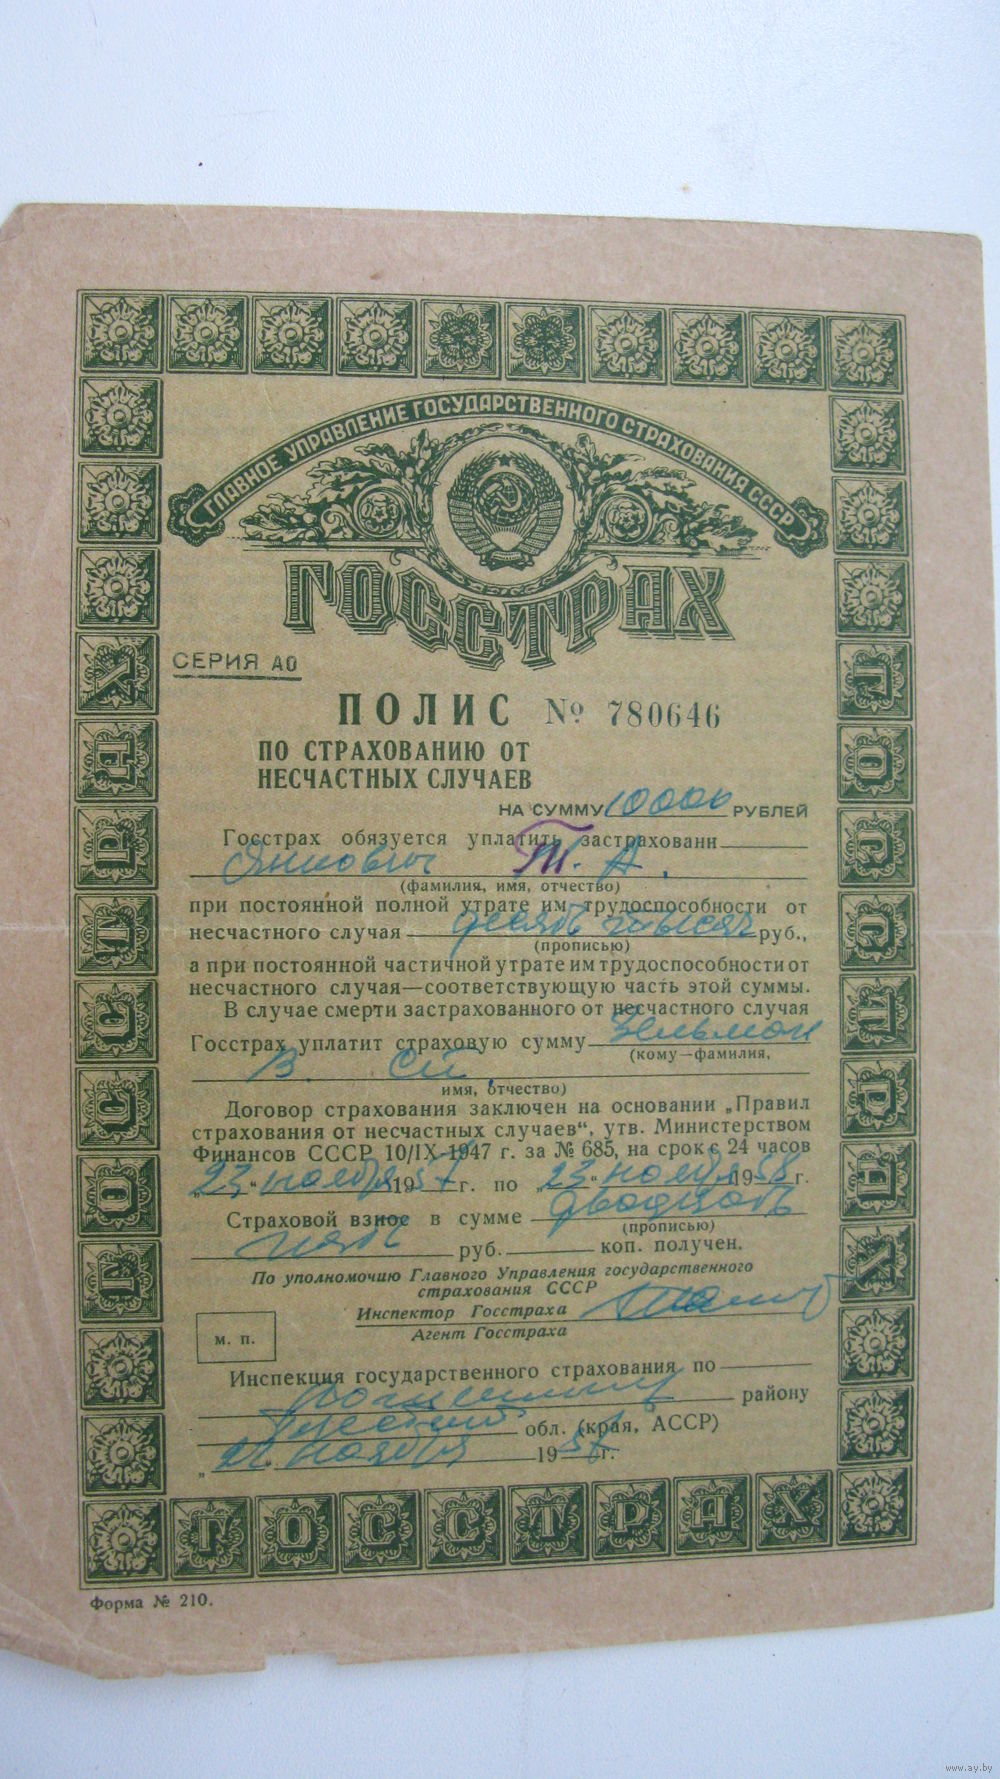 ГЛАВНОЕ УПРАВЛЕНИЕ ГОСУДАРСТВЕННОГО СТРАХОВАНИЯ СССР
ГОССТРАХ
СЕРИЯ АО
ПОЛИС № 780646
ПО СТРАХОВАНИЮ ОТ
НЕСЧАСТНЫХ СЛУЧАЕВ
НА СУММУ 10000 РУБЛЕЙ
Госстрах обязуется уплатить застрахованн
Янкович Т. А.
(фамилия, имя, отчество)
при постоянной полной утрате им трудоспособности от
несчастного случая десять тысяч руб.,
(прописью)
а при постоянной частичной утрате им трудоспособности от
несчастного случая—соответствующую часть этой суммы.
В случае смерти застрахованного от несчастного случая
Госстрах уплатит страховую сумму
(кому—фамилия,
В.
имя, отчество)
Договор страхования заключен на основании „Правил
страхования от несчастных случаев“, утв. Министерством
Финансов СССР 10/IX-1947 г. за № 685, на срок с 24 часов
„23“ ноября 1957 г. по „23“ ноября 1958 г.
Страховой взнос в сумме двадцать
(прописью)
пять руб. коп. получен.
По уполномочию Главного Управления государственного
страхования СССР
Инспектор Госстраха
Агент Госстраха
м. п.
Инспекция государственного страхования по
району
обл. (края, АССР)
„ ноября 1957 г.
ГОССТРАХ
ГОССТРАХ
ГОССТРАХ
Форма № 210.
www.ay.by